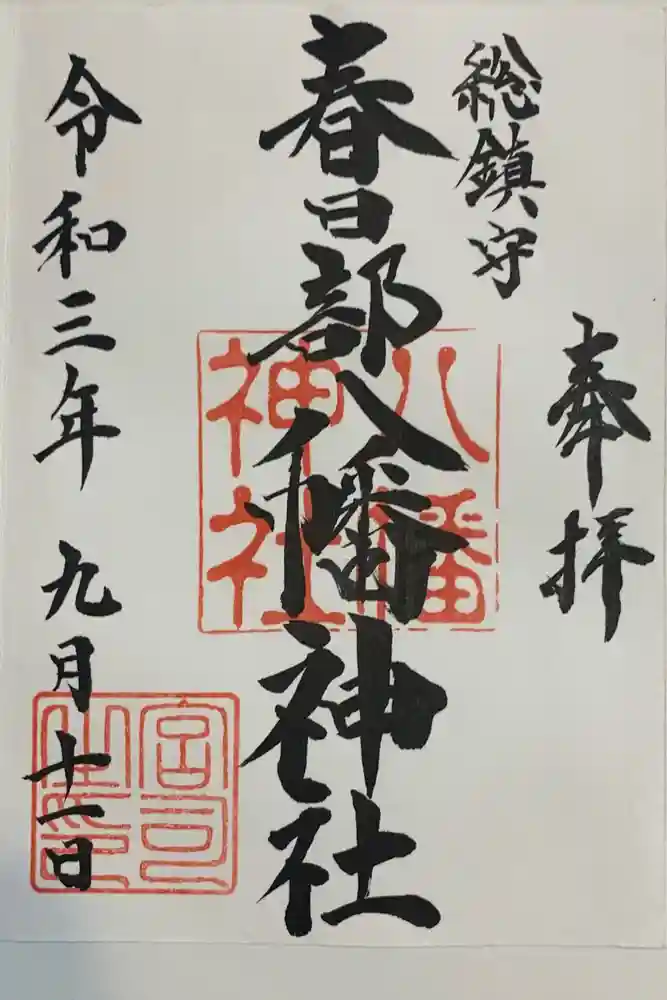 奉拝
総鎮守
春日部八幡神社
八幡
神社
令和三年 九月十一日
宮司
之印